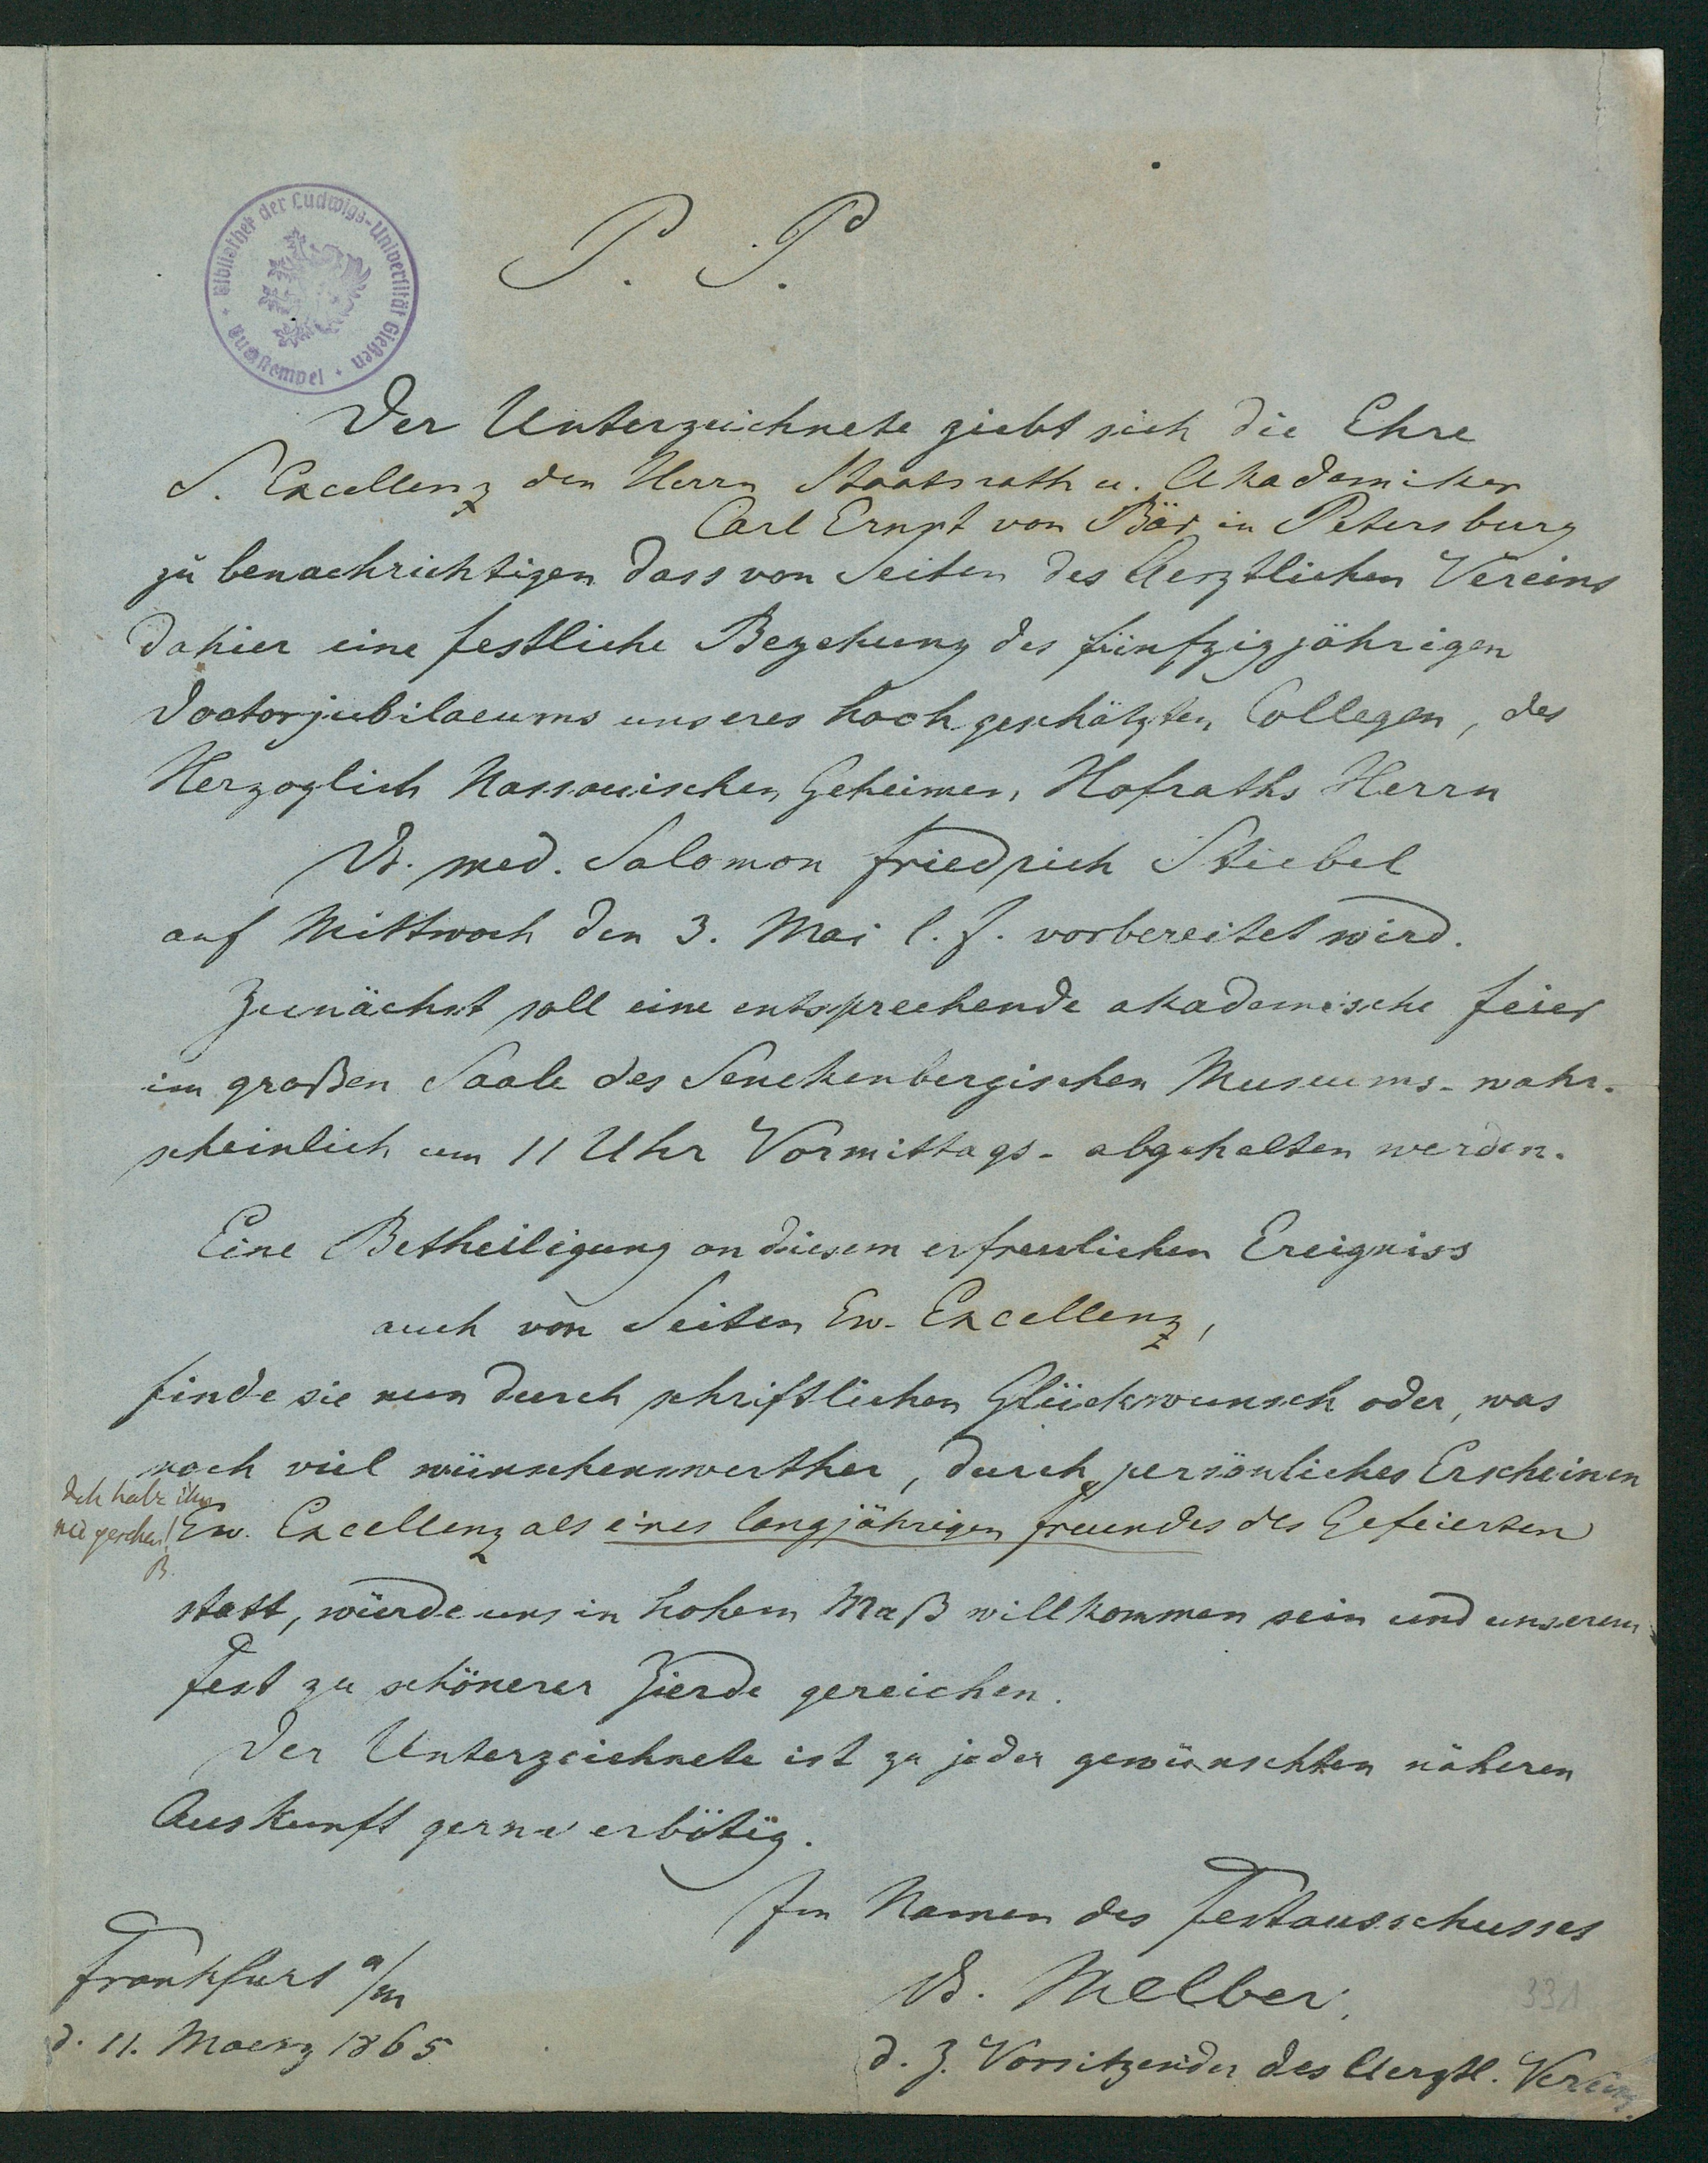 Bibliothek der Ludwigs-Universität Gießen
Tauschstempel
P. P.
Der Unterzeichnete giebt sich die Ehre
S. Excellenz den Herrn Staatsrath u. Akademiker
Carl Ernst von Bär in Petersburg
zu benachrichtigen dass von Seiten des Aerztlichen Vereins
dahier eine festliche Begehung des fünfzigjährigen
Doctorjubilaeums unseres hochgeschätzten Collegen, des
Herzoglich Nassauischen Geheimen Hofraths Herrn
Dr. med. Salomon Friedrich Stiebel
auf Mittwoch den 3. Mai l. J. vorbereitet wird.
Zunächst soll eine entsprechende akademische Feier
im großen Saale des Senckenbergischen Museums - wahr-
scheinlich um 11 Uhr Vormittags - abgehalten werden.
Eine Betheiligung an diesem erfreulichen Ereigniss
auch von Seiten Ew. Excellenz,
finde sie nun durch schriftlichen Glückwunsch oder, was
noch viel wünschenswerther, durch persönliches Erscheinen
Ich habe ihn
nie gesehen!
B.
Ew. Excellenz als eines langjährigen Freundes des Gefeierten
statt, würde uns in hohem Maß willkommen sein und unserem
Fest zu schönerer Zierde gereichen.
Der Unterzeichnete ist zu jeder gewünschten näheren
Auskunft gerne erbötig.
Im Namen des Festausschusses
Frankfurt a/m
Dr. Melber.
331
d. 11. Maerz 1865
d. Z. Vorsitzender des Aerztl. Vereins.